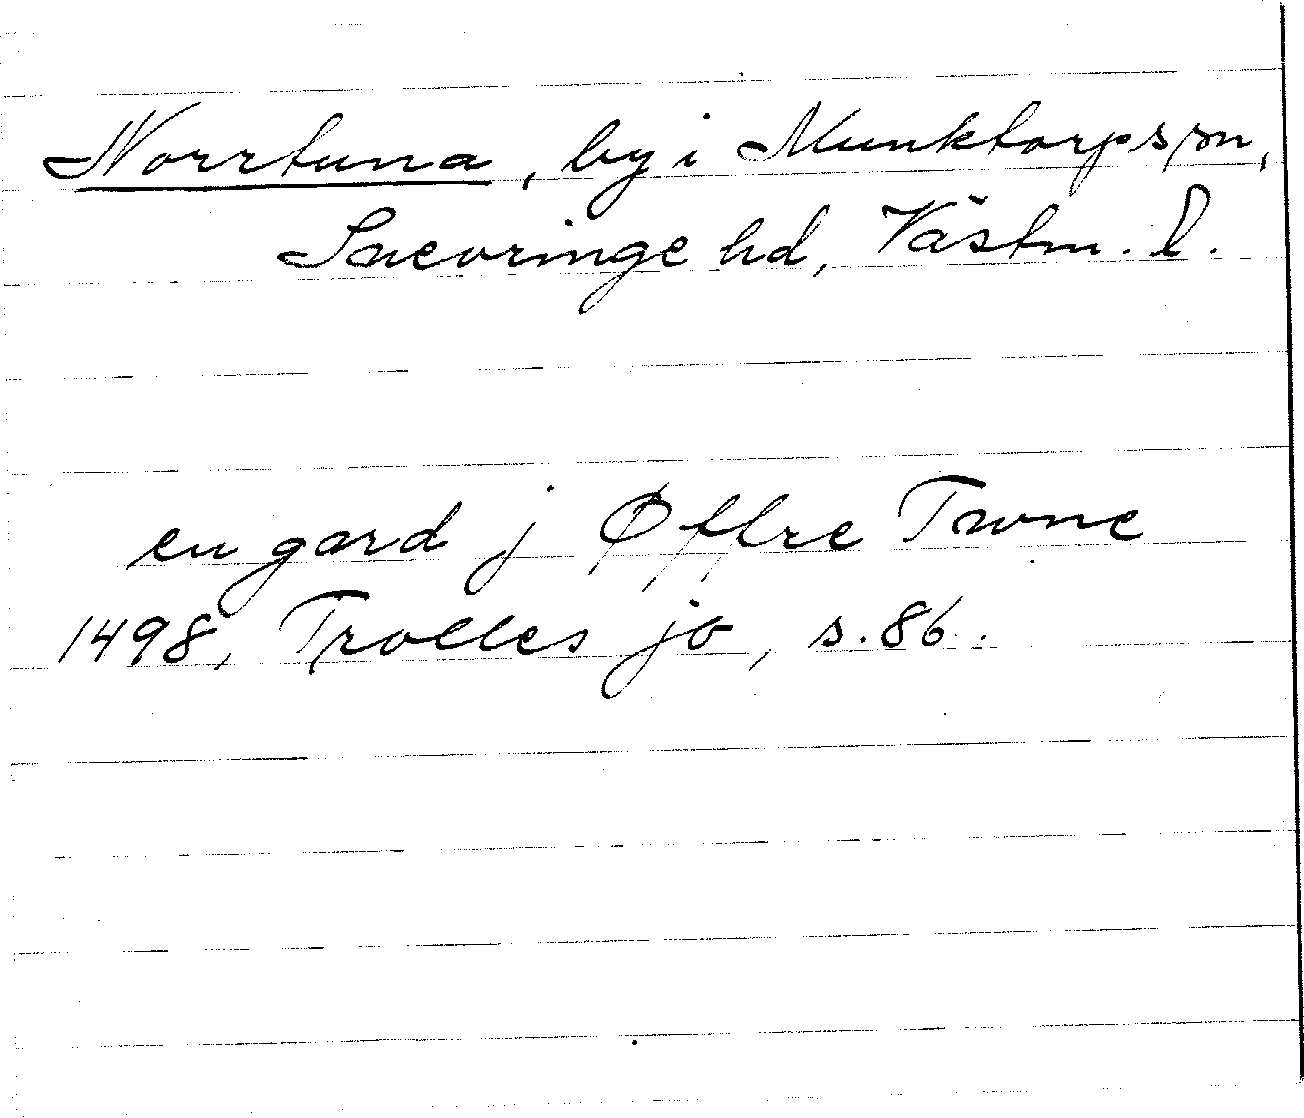 Norrtuna, by i Munktorps sn,
Snevringe hd, Västm. l.
en gard j Øffre Twne
1498, Trolles jb, s. 86.